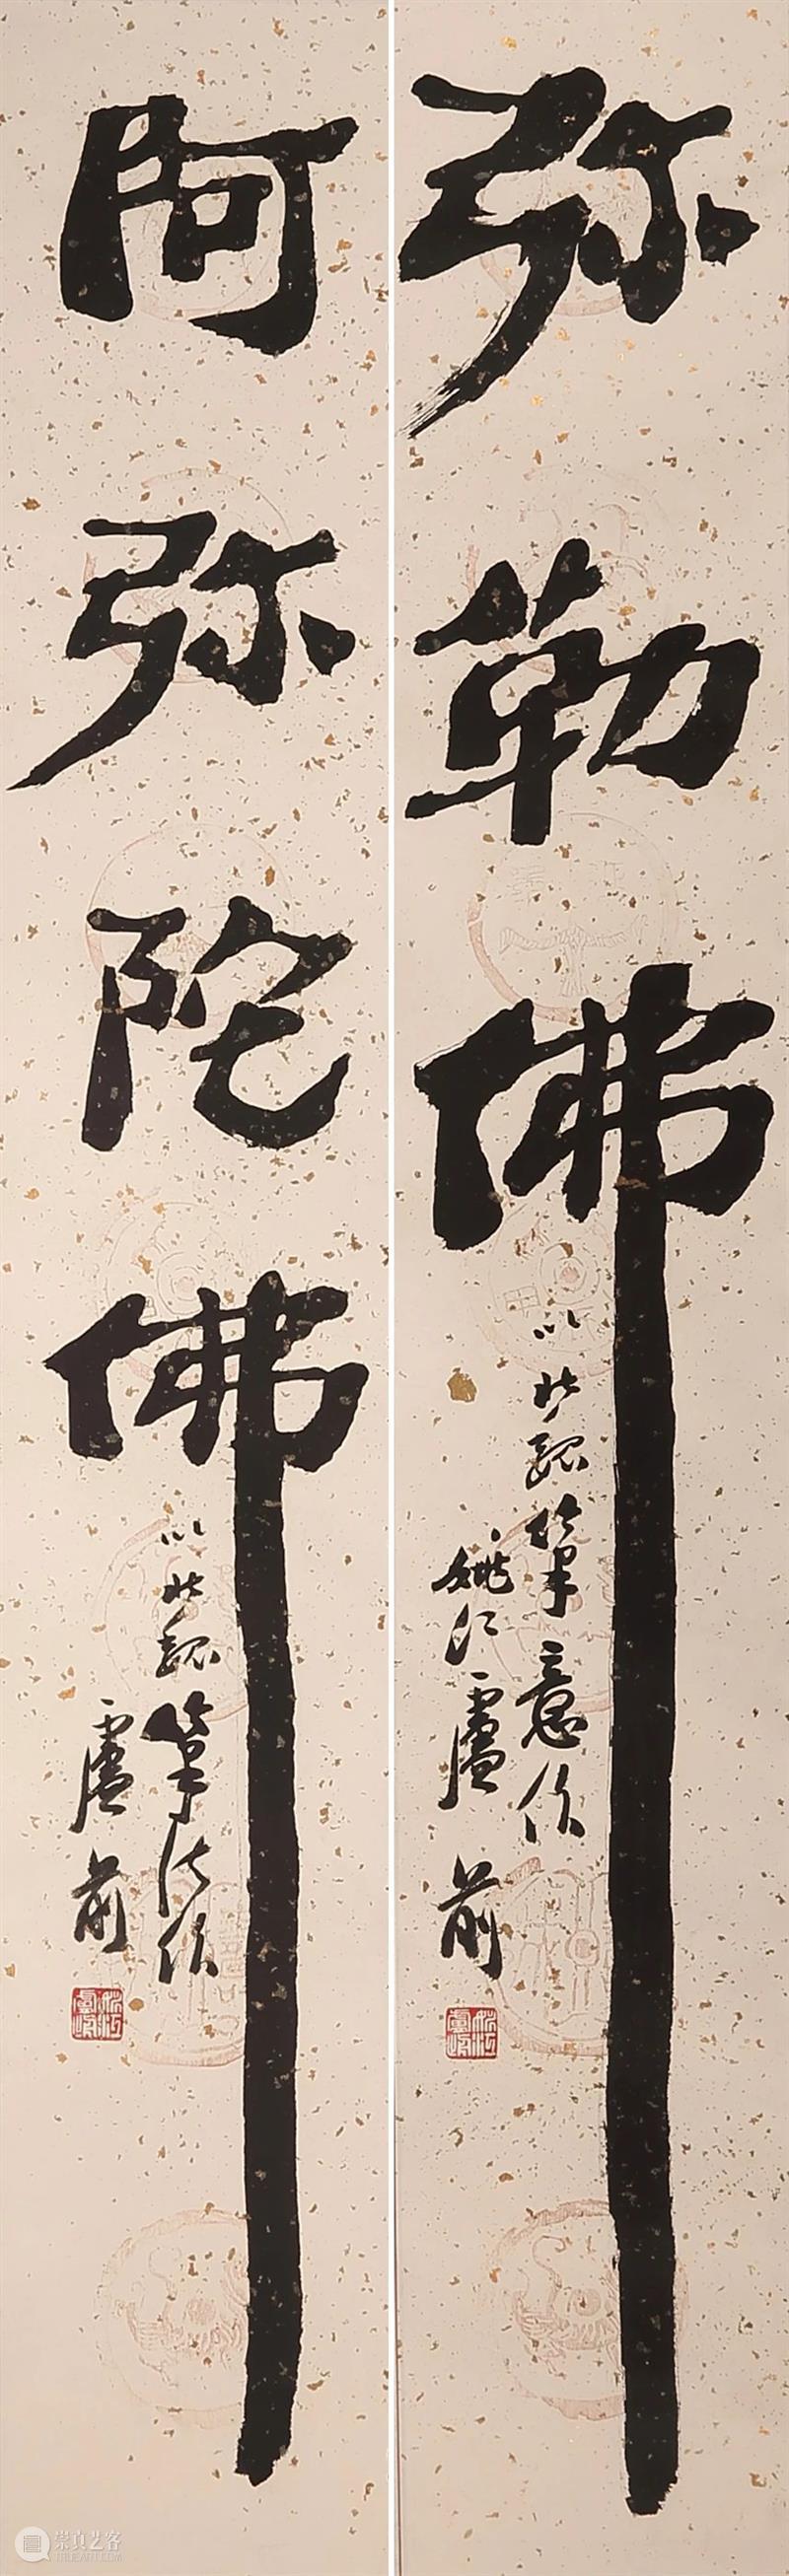 弥勒佛
以北魏笔意作
姚江卢前
阿弥陀佛
以北魏笔法作
卢前
崇真艺客